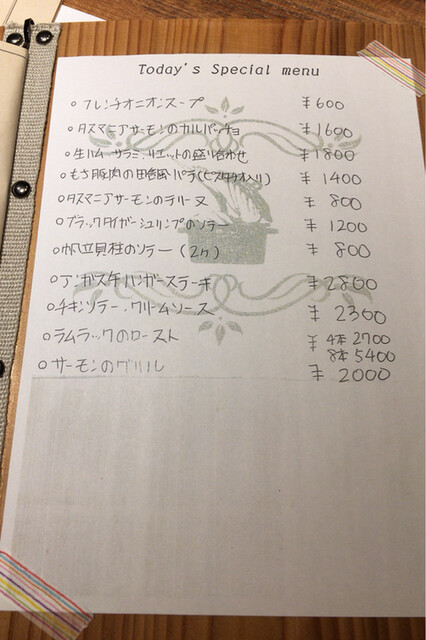 Today's Special menu
○ フレンチオニオンスープ ¥600
○ タスマニアサーモンのカルパッチョ ¥1600
○ 生ハム サラミ、リエットの盛り合わせ ¥1800
○ もち豚肉の田舎風パテ(ピスタチオ入り) ¥1400
○ タスマニアサーモンのテリーヌ ¥800
○ ブラックタイガーシュリンプのソテー ¥1200
○ 帆立貝柱のソテー (2ヶ) ¥800
○ アンガス牛ハンガーステーキ ¥2800
○ チキンソテー、クリームソース ¥2300
○ ラムラックのロースト ¥ 4本 2700
8本 5400
○ サーモンのグリル ¥2000